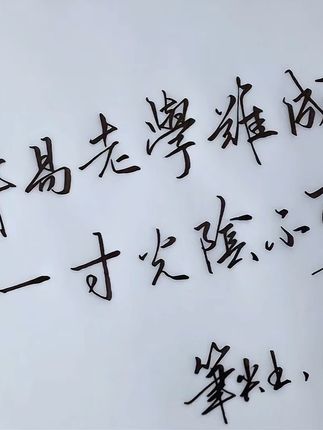 易老學難成
一寸光陰不
筆